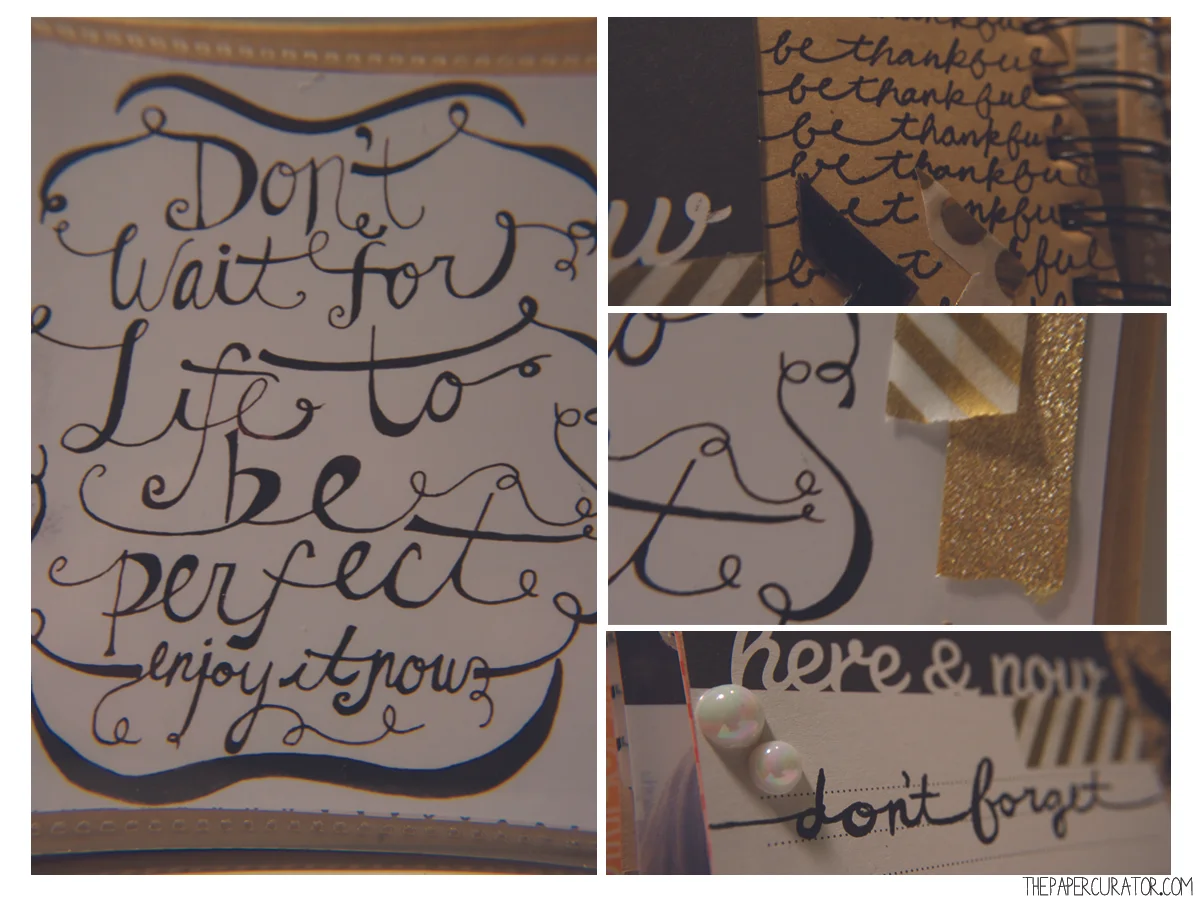 Don't
Wait for
Life to
be
perfect
enjoy it now
be thankful
be thankful
be thankful
be thankful
here & now
don't forget
THEPAPERCURATOR.COM